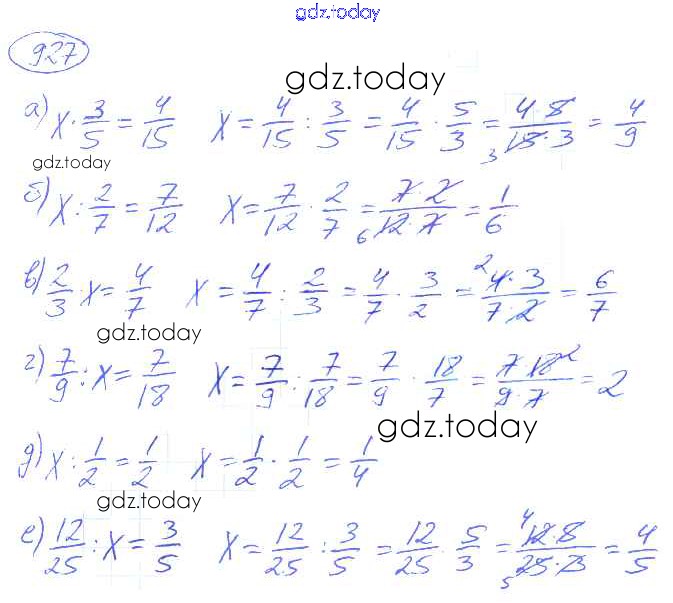 gdz.today
927
gdz.today
а) x · 3/5 = 4/15 x = 4/15 : 3/5 = 4/15 · 5/3 = 4·5/15·3 3 = 4/9
gdz.today
б) x : 2/7 = 7/12 x = 7/12 · 2/7 = 7·2/12·7 6 = 1/6
в) 2/3 · x = 4/7 x = 4/7 : 2/3 = 4/7 · 3/2 = 2 4·3/7·2 = 6/7
gdz.today
г) 7/9 : x = 7/18 x = 7/9 : 7/18 = 7/9 · 18/7 = 7·18 2/9·7 = 2
gdz.today
д) x : 1/2 = 1/2 x = 1/2 · 1/2 = 1/4
gdz.today
е) 12/25 : x = 3/5 x = 12/25 : 3/5 = 12/25 · 5/3 = 4 12·5/25·3 5 = 4/5